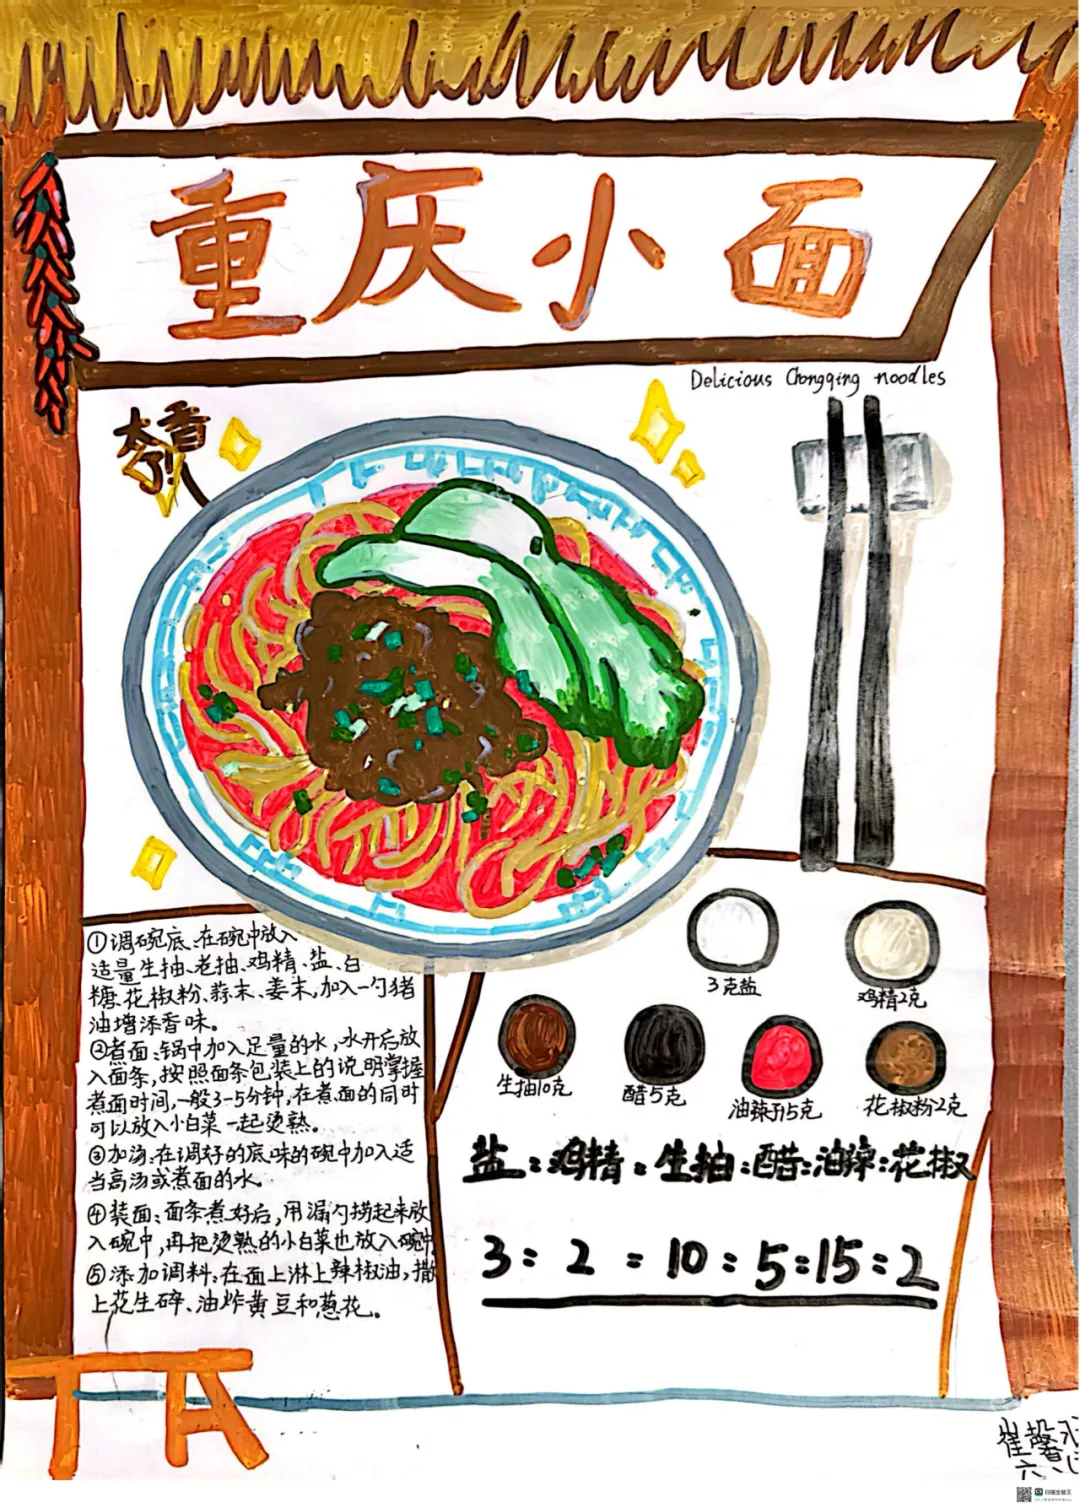 重庆小面
Delicious Chongqing noodles
①调碗底:在碗中放入
适量生抽、老抽、鸡精、盐、白
糖、花椒粉、蒜末、姜末,加入一勺猪
油增添香味。
②煮面:锅中加入足量的水,水开后放
入面条,按照面条包装上的说明掌握
煮面时间,一般3-5分钟,在煮面的同时
可以放入小白菜一起烫熟。
③加汤:在调好的底味的碗中加入适
当高汤或煮面的水。
④装面:面条煮好后,用漏勺捞起来放
入碗中,再把烫熟的小白菜也放入碗中
⑤添加调料:在面上淋上辣椒油,撒
上花生碎、油炸黄豆和葱花。
3克盐
鸡精2克
生抽10克
醋5克
油辣子15克
花椒粉2克
盐:鸡精:生抽:醋:油辣:花椒
3:2:10:5:15:2
崔馨
六、
扫描全能王